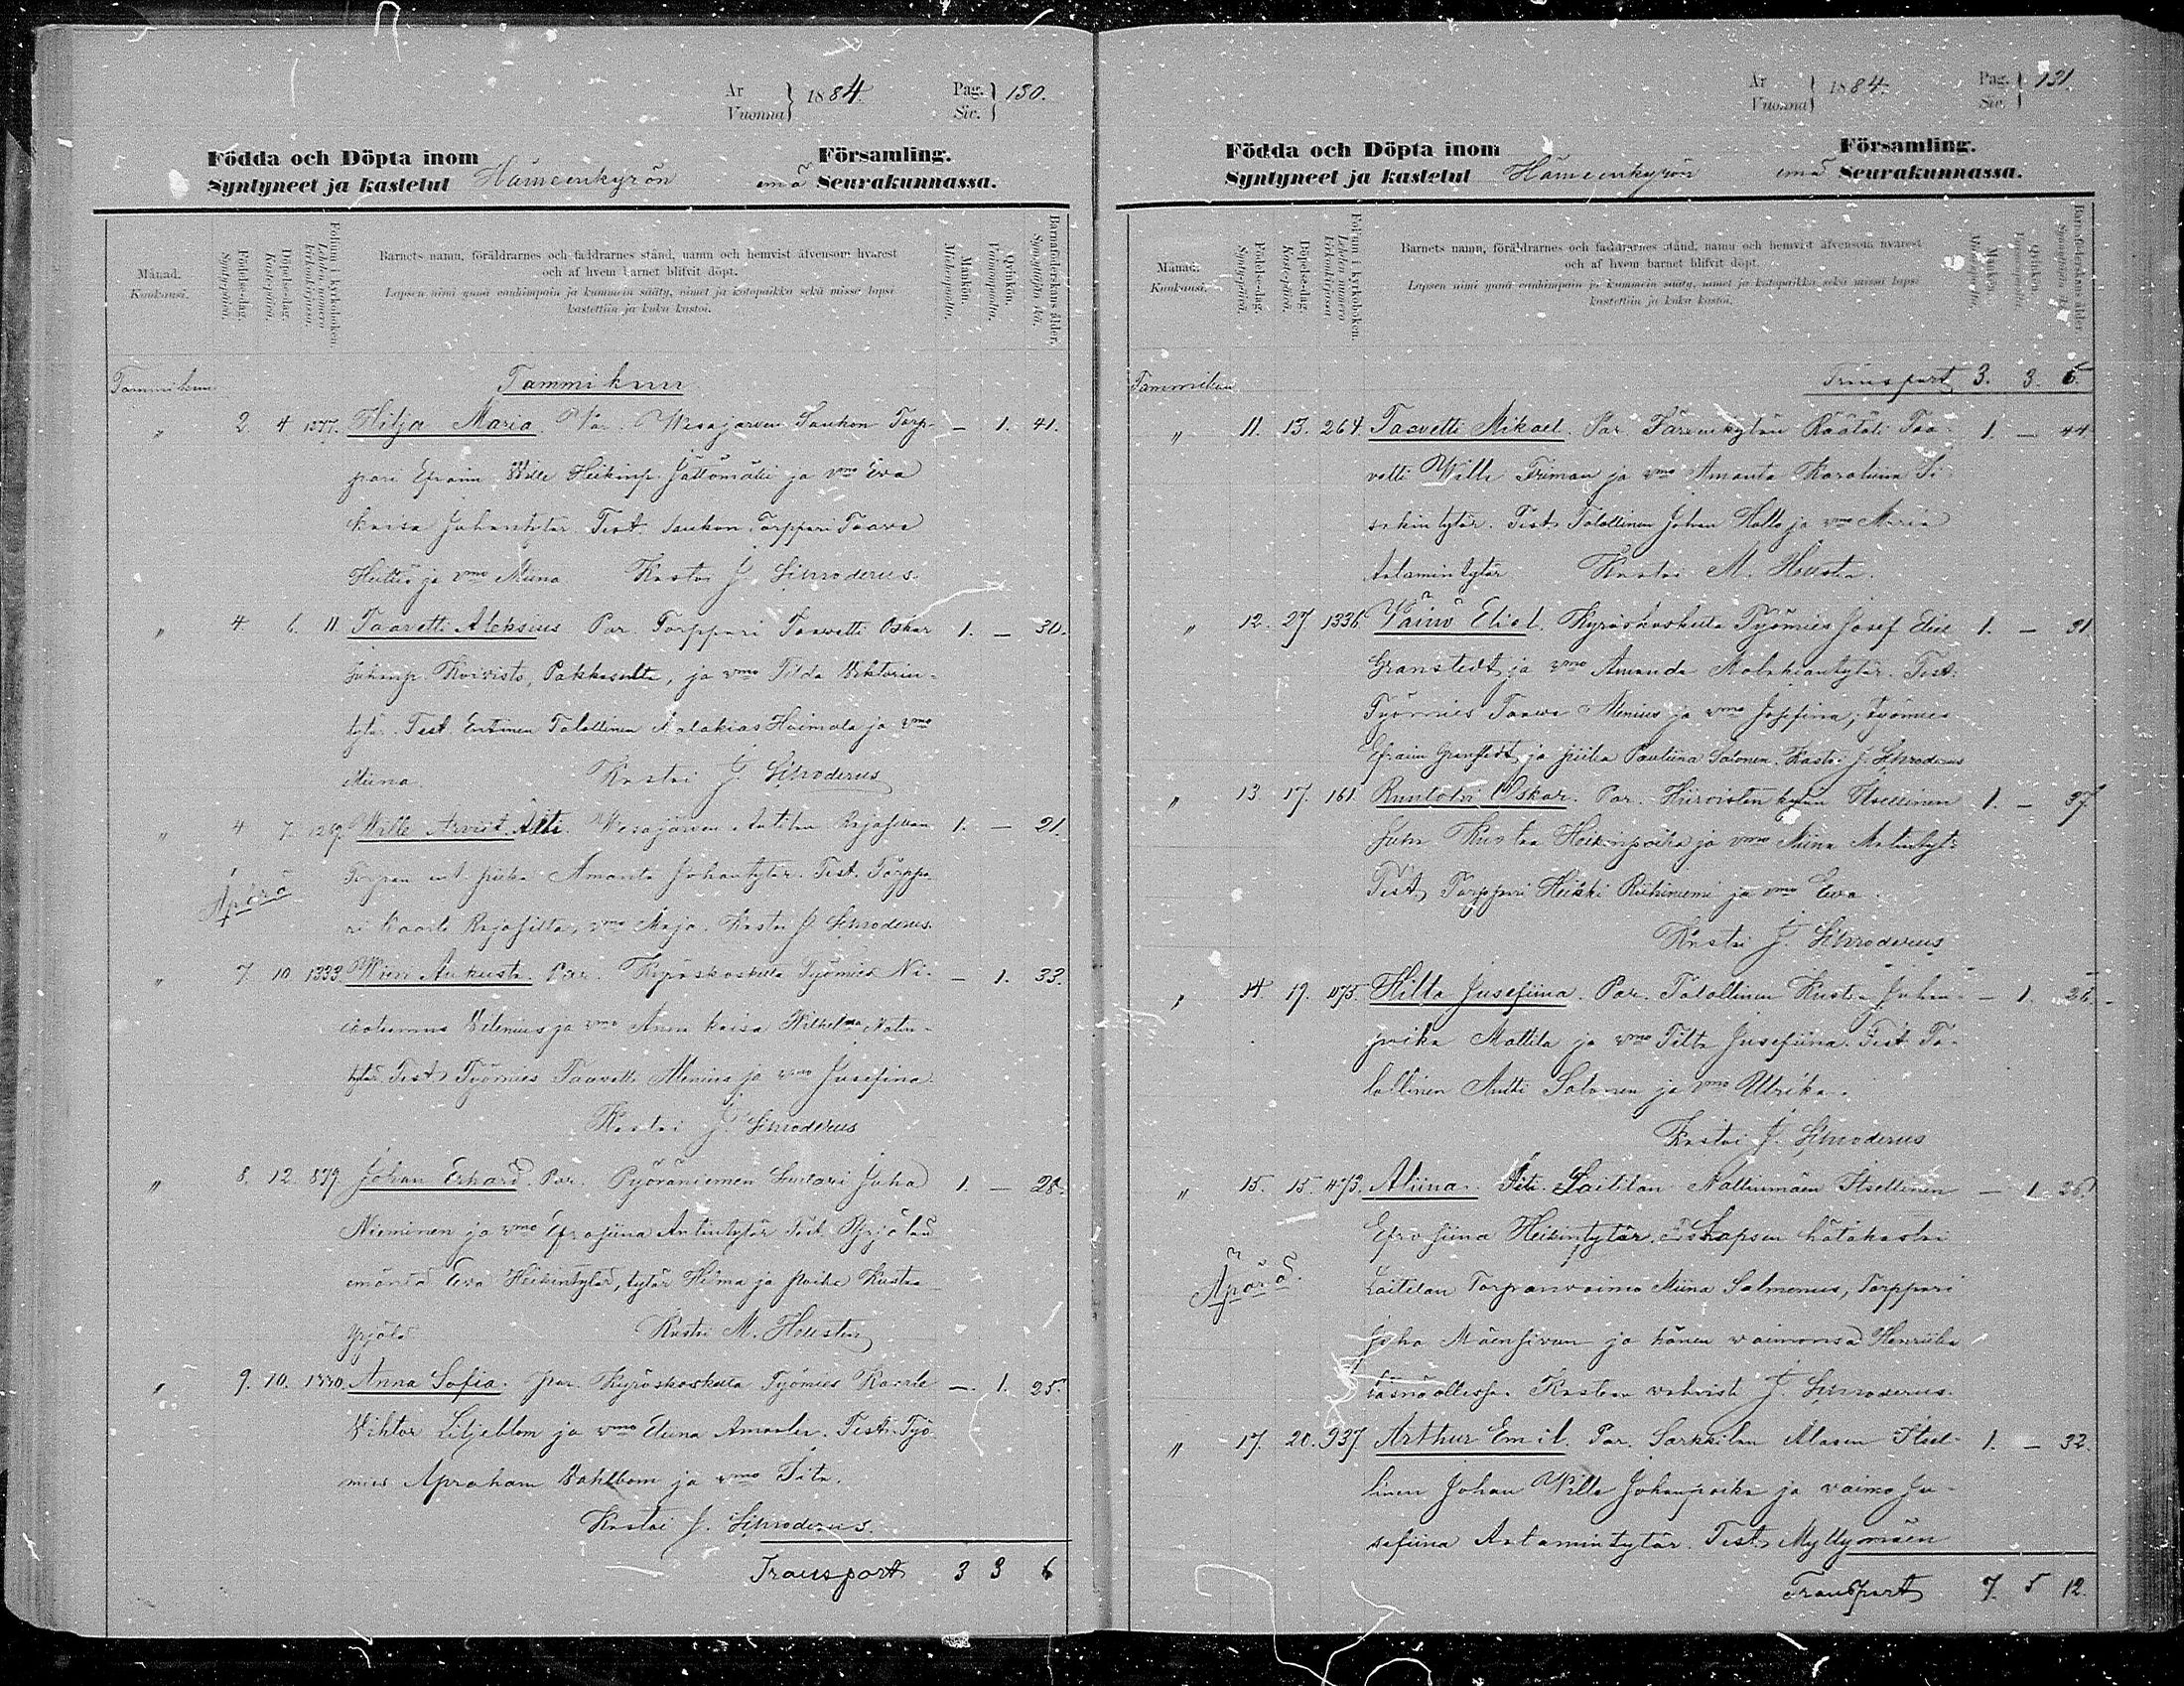 År Vuonna } 1884. Pag. Siv. } 130.
Födda och Döpta inom Församling.
Syntyneet ja kastetut Hämeenkyrön emä Seurakunnassa.
Månad. Kuukausi.
Födelse-dag. Syntypäivä.
Döpelse-dag. Kastepäivä.
Folium i kyrkoboken. Lehden numero kirkonkirjassa.
Barnets namn, föräldrarnes och faddrarnes stånd, namn och hemvist äfvensom hvarest
och af hvem barnet blifvit döpt.
Lapsen nimi ynnä vanhimpain ja kummein sääty, nimet ja kotopaikka sekä missä lapsi
kastettiin ja kuka kastoi.
Mankön. Miehenpuolia.
Qvinkön. Vaimonpuolia.
Barnaföderskans ålder. Synnyttäjän ikä.
Tammikuu Tammikuu
" 2. 4. 1377. Hilja Maria. Van. Wesajärven Saukon Torp- — 1. 41.
pari Efraim Wille Heikinp. Jättömäki ja vmo Ewa
Kaisa Juhantytär. Test. Saukon Torppari Taave
ja vmo Miina Kastoi J. Schroderus.
" 4. 6. 11. Taavetti Aleksius. Par. Torppari Taavetti Oskar 1. — 30.
Juhanp. Koivisto, Pakkaselta, ja vmo Tilda Wiktorin-
tytär. Test. Entinen Talollinen Malakias Heimola ja vmo
Miina. Kastoi J. Schroderus
" 4 7. 1269. Wille Arviit. Äiti. Wesajärven Anttilan Rajasillan 1. — 21.
Äpärä Torpan piika Amanta Johantytär. Test. Torppa-
ri Kaarle Rajasilta, vmo Maja. Kastoi J. Schroderus.
" 7. 10. 1333. Augusta. Par. Kyröskoskelta Työmies Ni- — 1. 33.
Welenius ja vmo Anna Kaisa Wilhelma Matin-
tytär. Test. Työmies Taavetti Menius ja vmo Josefina
Kastoi J. Schroderus
" 8. 12. 879. Johan Erhard. Par. Pyöräniemen Suutari Juha 1. — 28.
Nieminen ja vmo Efrosiina Antintytär. Test. Yrjölän
emäntä Ewa Heikintytär, tytär Hilma ja poika Kustaa
Yrjölä Kastoi M. Hellsten
" 9. 10. 1330. Anna Sofia. Par. Kyröskoskelta Työmies Kaarle —. 1. 25.
Wihtor Liljeblom ja vmo Elina Amalia. Test. Työ-
mies Apraham Dahlbom ja vmo Tilta.
Kastoi J. Schroderus.
Transport 3 3 6
År Vuonna } 1884. Pag. Siv. } 131.
Födda och Döpta inom Församling.
Syntyneet ja kastetut Hämeenkyrön emä Seurakunnassa.
Månad. Kuukausi.
Födelse-dag. Syntypäivä.
Döpelse-dag. Kastepäivä.
Folium i kyrkoboken. Lehden numero kirkonkirjassa.
Barnets namn, föräldrarnes och faddrarnes stånd, namn och hemvist äfvensom hvarest
och af hvem barnet blifvit döpt.
Lapsen nimi ynnä vanhimpain ja kummein sääty, nimet ja kotopaikka sekä missä lapsi
kastettiin ja kuka kastoi.
Mankön. Miehenpuolia.
Qvinkön. Vaimonpuolia.
Barnaföderskans ålder. Synnyttäjän ikä.
Tammikuu Transport 3. 3. 6.
" 11. 13. 264. Taavetti Mikael. Par. Järvenkylän Räätäli Taa- 1. — 44.
vetti Wille Friman ja vmo Amanta Karoliina Ii-
sakintytär. Test. Talollinen Johan Hollo ja vmo Maria
Aatamintytär Kastoi M. Hellsten.
" 12. 27 1336 Väinö Eliel. Kyröskoskelta Työmies Josef Eliel 1. — 31
Granstedt ja vmo Amanda Malakiantytär. Test.
Työmies Taave Menius ja vmo Josefina, työmies
Efraim Granstedt ja piika Pauliina Salonen. Kastoi J. Schroderus
" 13. 17. 161. Oskar. Par. Hiirvisten kylän Itsellinen 1. — 37
Juha Kustaa Heikinpoika ja vmo Miina Matintyt.
Test. Torppari Heikki Riihiniemi ja vmo Ewa.
Kastoi J. Schroderus
" 14. 19. 1075. Hilta Jusefiina. Par. Talollinen Kustaa Juhan- — 1. 26.
poika Mattila ja vmo Tilta Jusefiina. Test. Ta-
lollinen Antti Salonen ja vmo Ulrika.
Kastoi J. Schroderus
" 15. 15. 473. Aliina. Äiti. Laitilan Itsellinen — 1 26.
Efrosiina Heikintytär. Lapsen hätäkastoi
Äpärä. Laitilan Torpanvaimo Miina Salmenius, Torppari
Juha Mäensivun ja hänen vaimonsa Henriika
läsnäollessa. Kasteen vahvisti J. Schroderus.
" 17. 20. 937. Arthur Emil. Par. Sarkkilan Alasen Itsel- 1. — 32.
linen Johan Wille Johanpoika ja vaimo Ju-
sefiina Aatamintytär. Test. Myllymäen
Transport 7. 5 12.